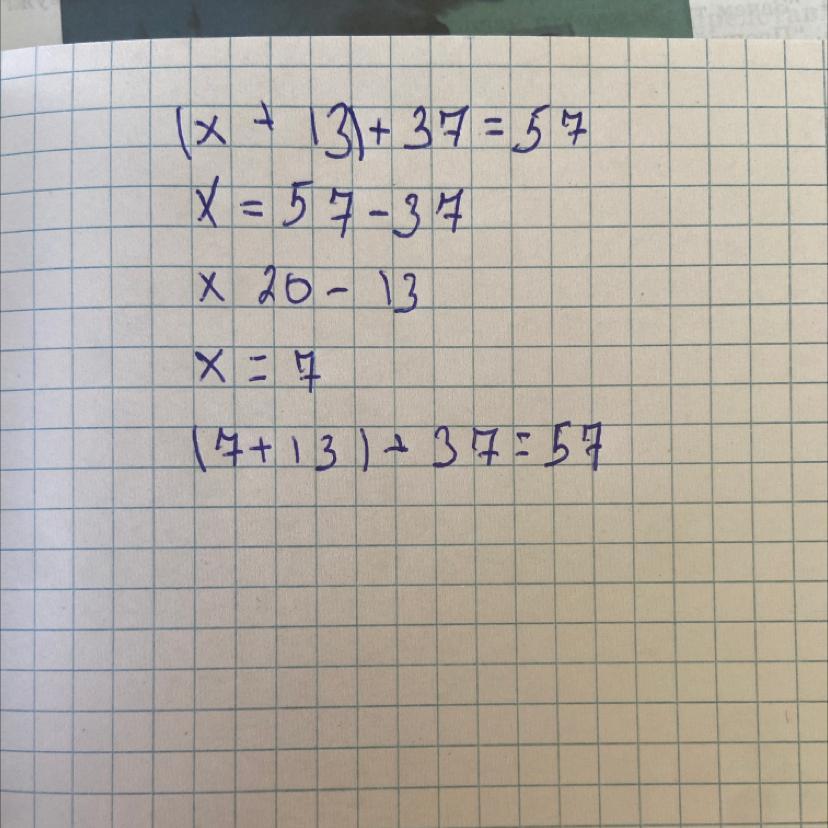 (x + 13) + 37 = 57
x = 57 - 37
x 20 - 13
x = 7
(7 + 13) + 37 = 57